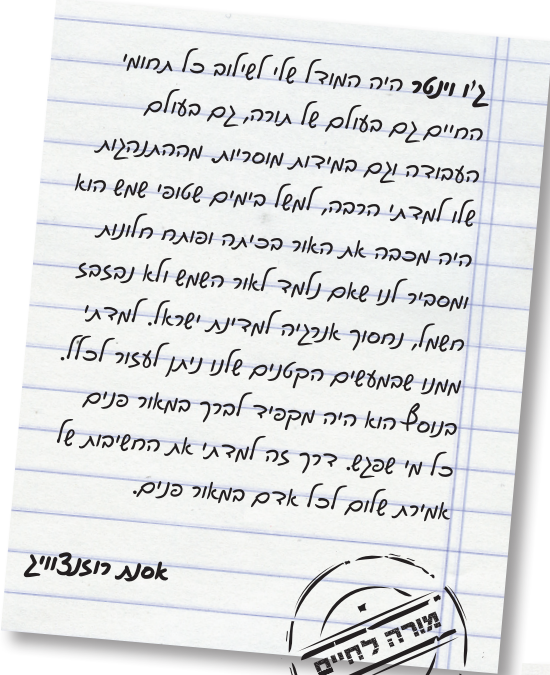 ג'ו וינטר היה המודל שלי לשילוב כל תחומי
החיים גם בעולם של תורה, גם בעולם
העבודה וגם במידות מוסריות. מההתנהגות
שלו למדתי הרבה, למשל בימים שטופי שמש הוא
היה מכבה את האור בכיתה ופותח חלונות
ומסביר לנו שאם נלמד לאור השמש ולא נבזבז
חשמל, נחסוך אנרגיה למדינת ישראל. למדתי
ממנו שבמעשים הקטנים שלנו ניתן לעזור לכלל.
בנוסף הוא היה מקפיד לברך במאור פנים
כל מי שפגש. דרך זה למדתי את החשיבות של
אמירת שלום לכל אדם במאור פנים.
אסנת רוזנצווייג
מורה לחיים